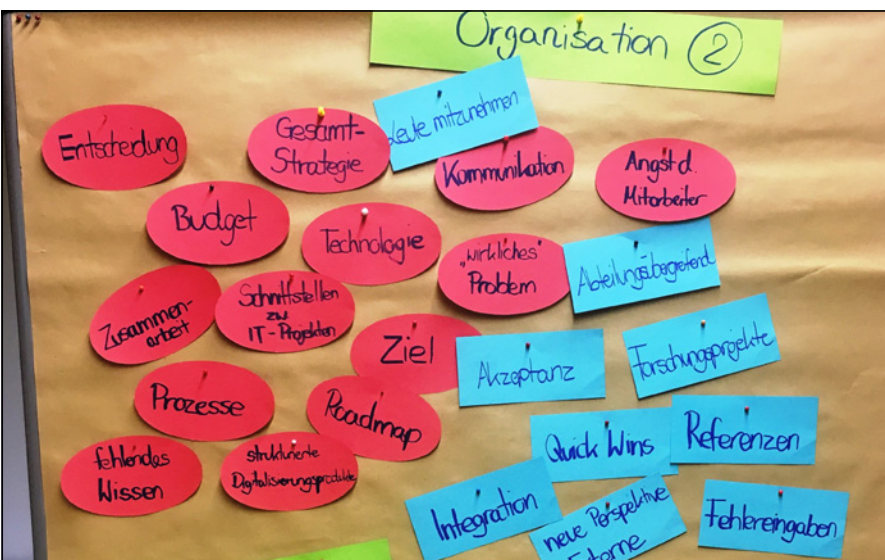 Organisation 2
Leute mitzunehmen
Entscheidung
Gesamt-
Strategie
Kommunikation
Angst d.
Mitarbeiter
Budget
Technologie
"wirkliches"
Problem
Abteilungsübergreifend
Zusammen-
arbeit
Schnittstellen
zu
IT-Projekten
Ziel
Akzeptanz
Forschungsprojekte
Prozesse
Roadmap
Quick Wins
Referenzen
fehlendes
Wissen
strukturierte
Digitalisierungsprodukte
Integration
neue Perspektive
Externe
Fehlereingaben